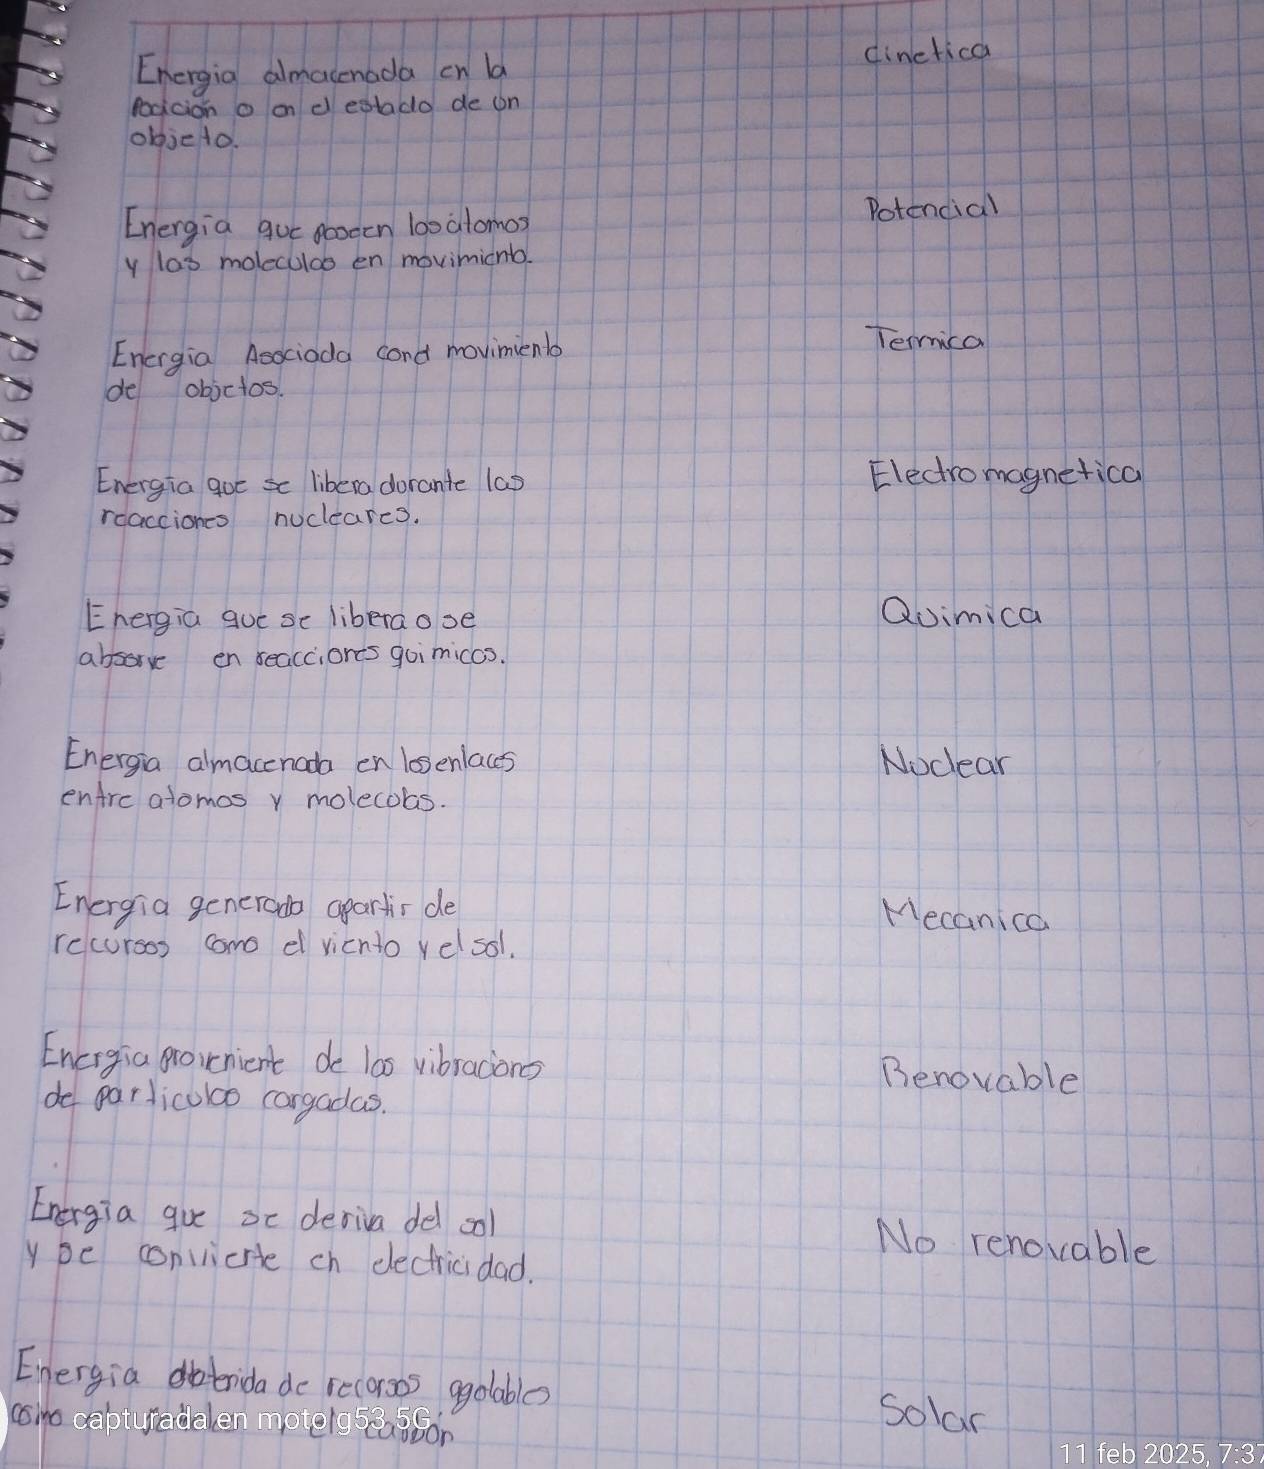 Energia almacenada en la
Cinetica
posicion o en el estado de un
objeto.
Energia que poseen los atomos
Potencial
y las moleculas en movimiento.
Energia Asociada con el movimiento
Termica
de objetos.
Energia que se libera durante las
Electromagnetica
reacciones nucleares.
Energia que se libera o se
Quimica
absorve en reacciones quimicas.
Energia almacenada en los enlaces
Nuclear
entre atomos y moleculas.
Energia generada apartir de
Mecanica
recursos como el viento y el sol.
Energia proveniente de las vibraciones
Renovable
de particulas cargadas.
Energia que se deriva del sol
No renovable
y se convierte en electricidad.
Energia obtenida de recursos agotables
Solar
como el carbon
capturada en moto g53 5G
11 feb 2025, 7:37